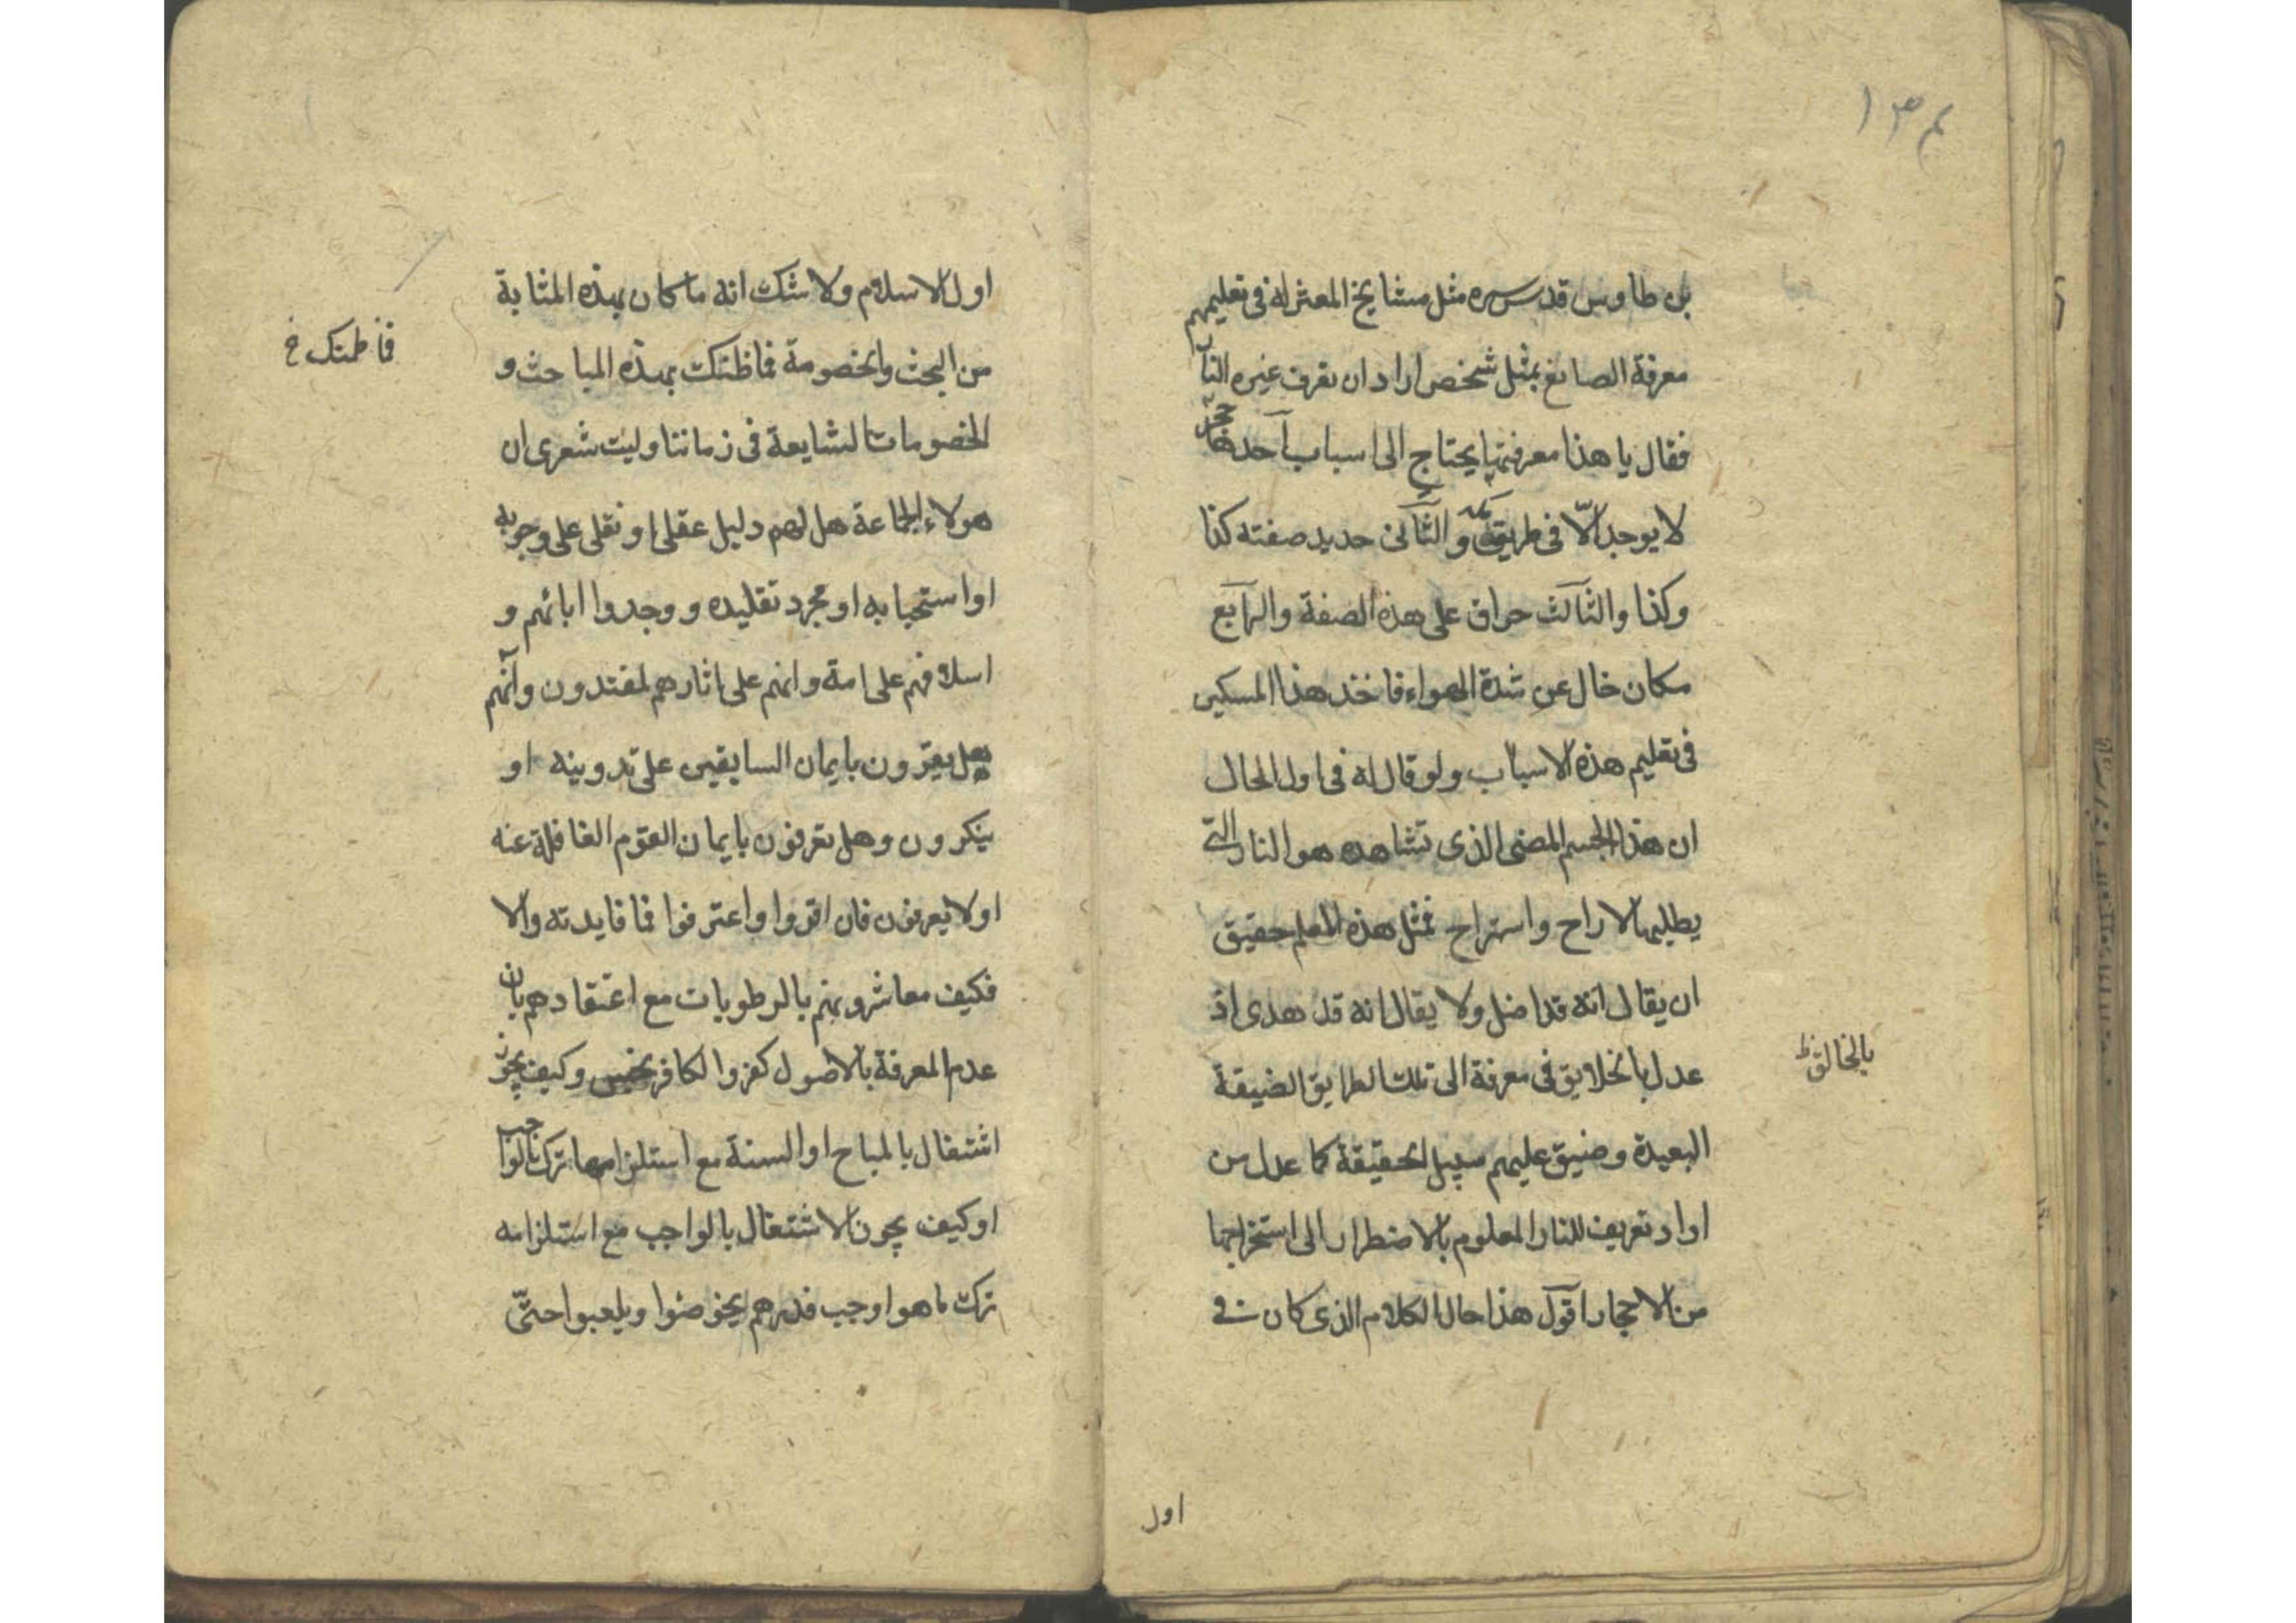 ١٣٤
بن طاوس قدس سره مثل مشايخ المعتزلة فى تعليمهم
معرفة الصانع بمثل شخص اراد ان يعرف غيره النار
فقال يا هذا معرفتها يحتاج الى اسباب احدها حجر
لا يوجد الّا فى طريق مكة والثانى حديد صفته كذا
وكذا والثالث حراق على هذه الصفة والرابع
مكان خال عن شدة الهواء فاخذ هذا المسكين
فى تعليم هذه الاسباب ولو قال له فى اول الحال
ان هذا الجسم المضى الذى تشاهده هو النار التى
يطلبها لاراح واستراح فمثل هذه المعلم حقيق
ان يقال انه قد اضل ولا يقال انه قد هدى اذ
عدل بالخلايق فى معرفة الى تلك الطرايق الضيقة
بالخالق ظ
البعيدة وضيق عليهم سبيل الحقيقة كما عدل من
اراد تعريف للنار المعلوم بالاضطرار الى استخراجها
من الاحجار اقول هذا حال الكلام الذى كان فى
اول
اول الاسلام ولا شك انه ما كان بهذه المثابة
من البحث والخصومة فما ظنك بهذه المباحث و
فما ظنك خ
الخصومات الشايعة فى زماننا وليت شعرى ان
هولاء الجماعة هل لهم دليل عقلى او نقلى على وجوبه
او استحبابه او مجرد تقليده ووجدوا ابائهم و
اسلافهم على امة وانهم على اثارهم لمقتدون وانهم
هل يقرون بايمان السابقين على تدوينه او
ينكرون وهل يعرفون بايمان القوم الغافلة عنه
او لا يعرفون فان اقروا واعترفوا فما فايدته والا
فكيف معاشروبهم بالرطوبات مع اعتقادهم بان
عدم المعرفة بالاصول كفر والكافر نجس وكيف يجوز
اشتغال بالمباح او السنة مع استلزامها ترك الواجب
او كيف يجوز الاشتغال بالواجب مع استلزامه
ترك ما هو اوجب فذرهم يخوضوا ويلعبوا حتّى